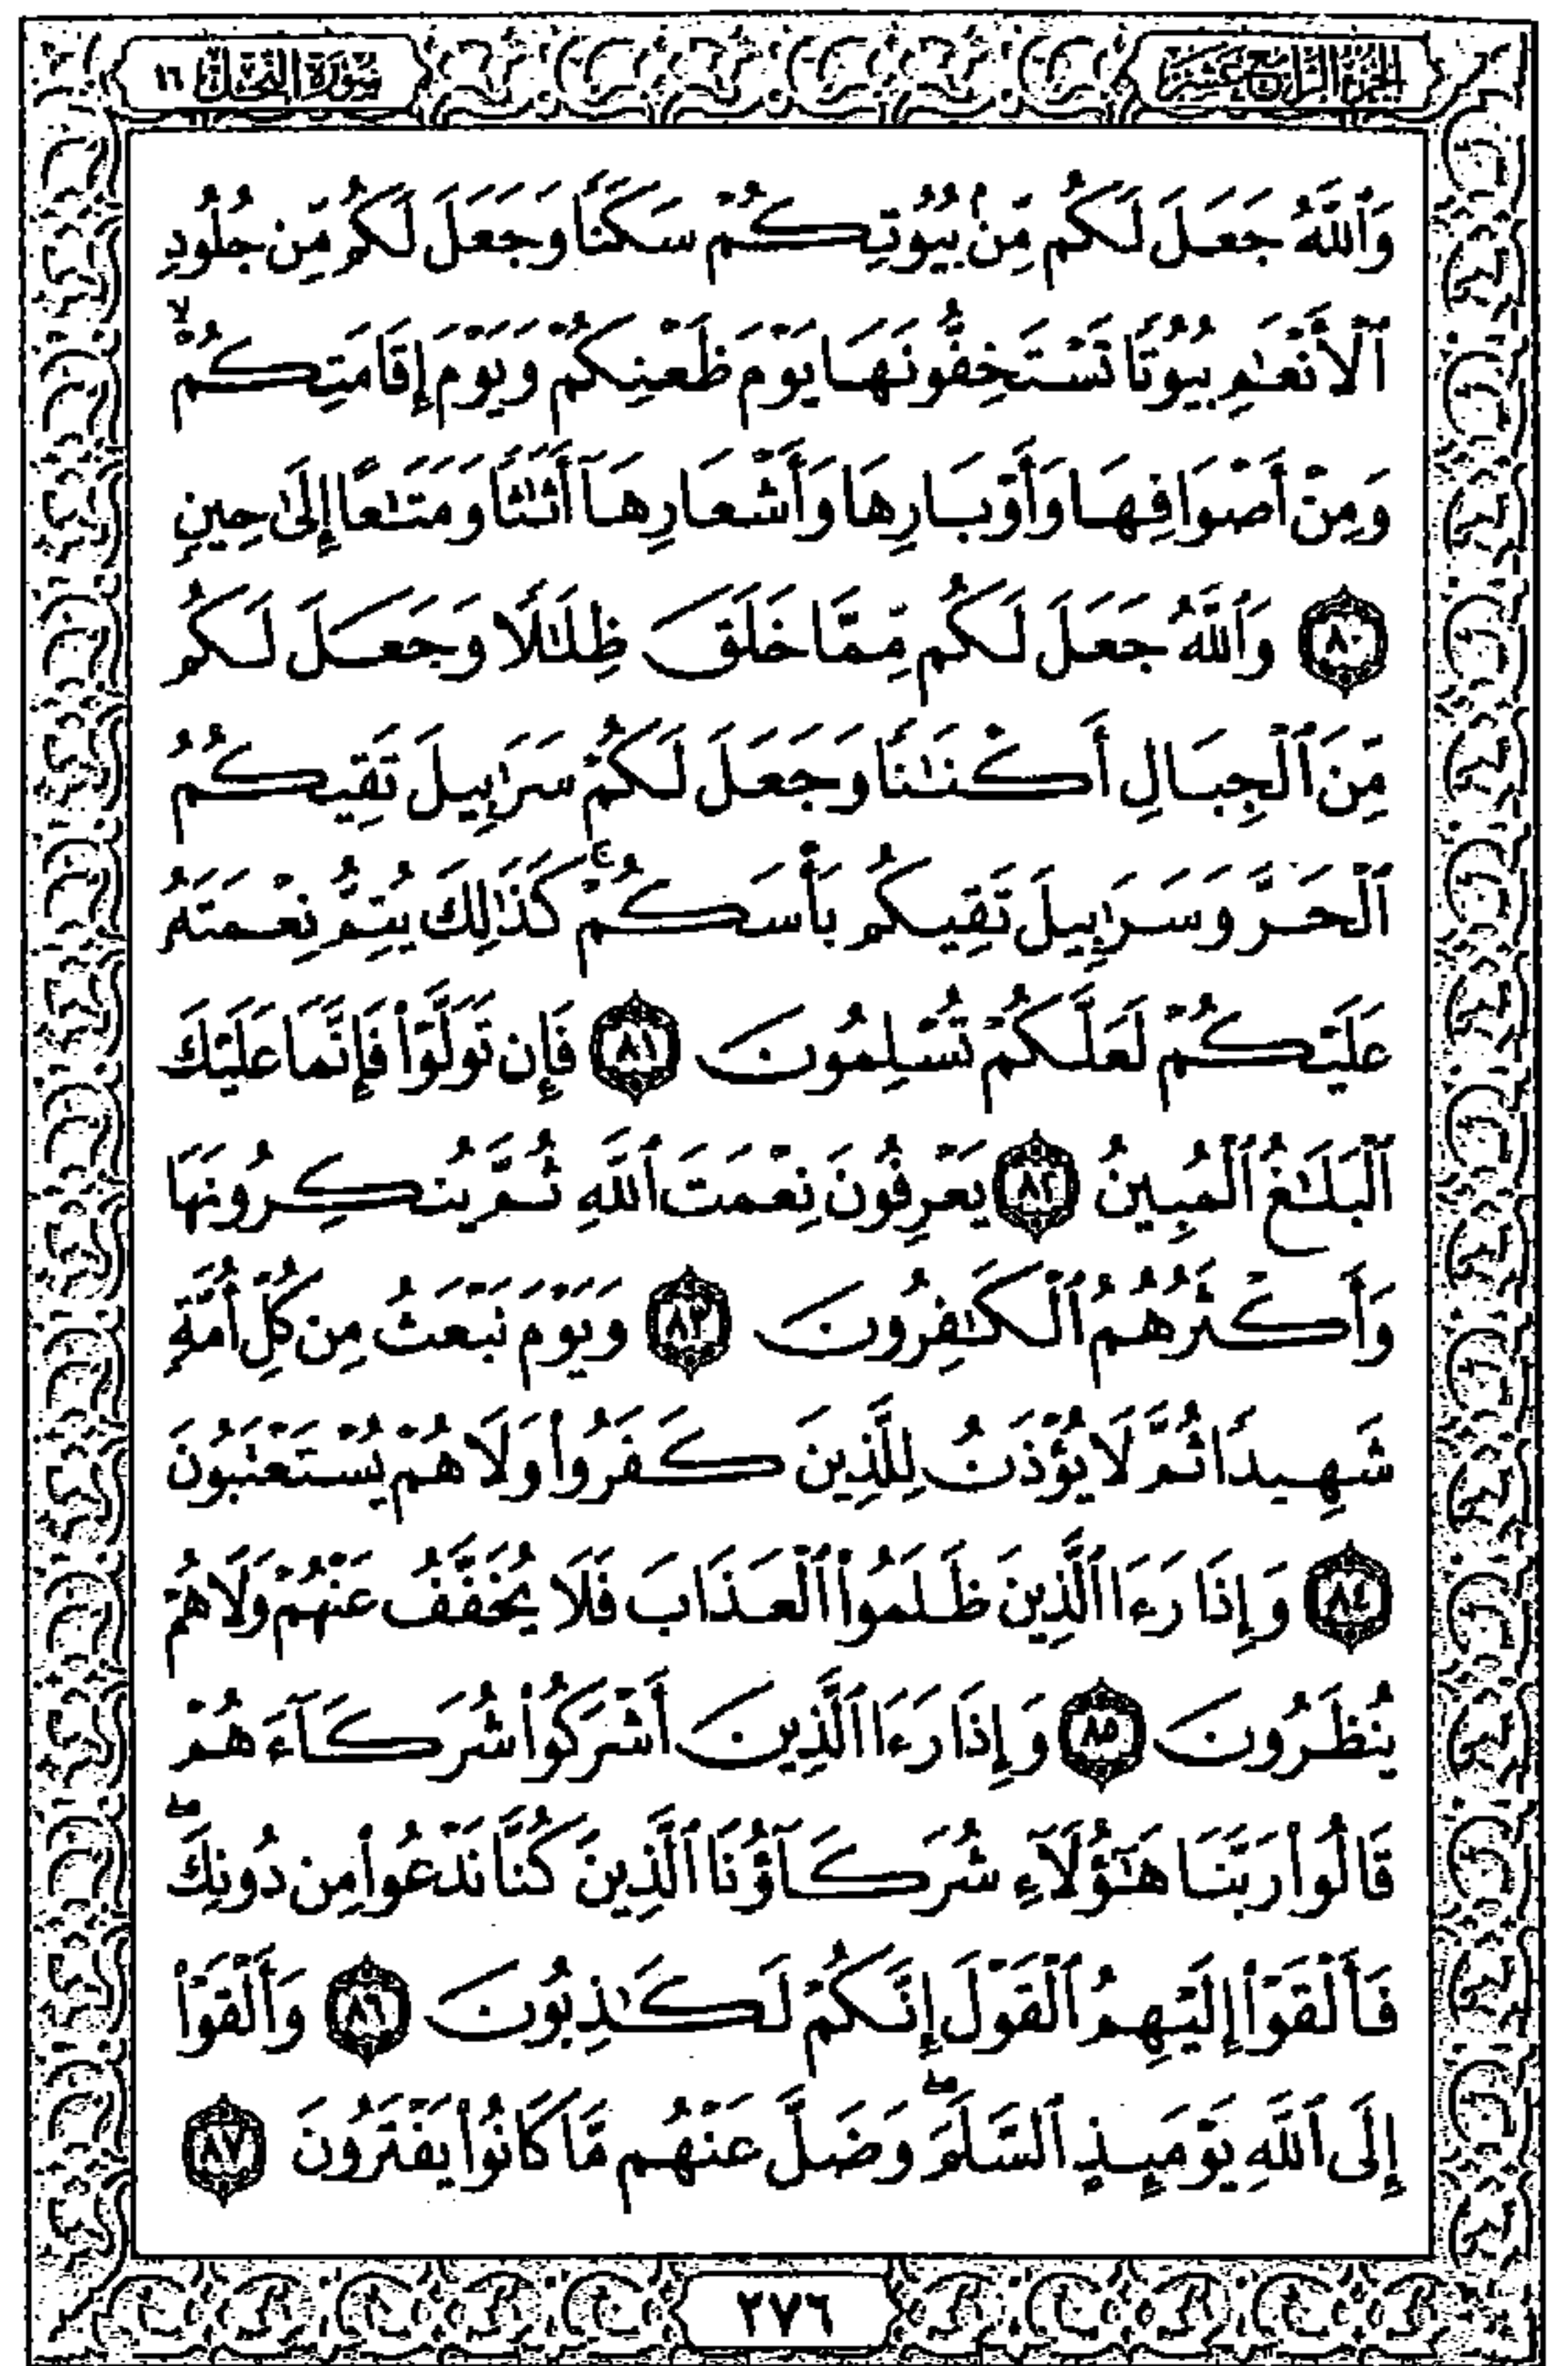 الجزء الرابع عشر
سورة النحل ١٦
وَٱللَّهُ جَعَلَ لَكُم مِّنۢ بُيُوتِكُمْ سَكَنًا وَجَعَلَ لَكُم مِّن جُلُودِ
ٱلْأَنْعَٰمِ بُيُوتًا تَسْتَخِفُّونَهَا يَوْمَ ظَعْنِكُمْ وَيَوْمَ إِقَامَتِكُمْ ۙ
وَمِنْ أَصْوَافِهَا وَأَوْبَارِهَا وَأَشْعَارِهَآ أَثَٰثًا وَمَتَٰعًا إِلَىٰ حِينٍ
٨٠ وَٱللَّهُ جَعَلَ لَكُم مِّمَّا خَلَقَ ظِلَٰلًا وَجَعَلَ لَكُم
مِّنَ ٱلْجِبَالِ أَكْنَٰنًا وَجَعَلَ لَكُمْ سَرَٰبِيلَ تَقِيكُمُ
ٱلْحَرَّ وَسَرَٰبِيلَ تَقِيكُم بَأْسَكُمْ ۚ كَذَٰلِكَ يُتِمُّ نِعْمَتَهُۥ
عَلَيْكُمْ لَعَلَّكُمْ تُسْلِمُونَ ٨١ فَإِن تَوَلَّوْا۟ فَإِنَّمَا عَلَيْكَ
ٱلْبَلَٰغُ ٱلْمُبِينُ ٨٢ يَعْرِفُونَ نِعْمَتَ ٱللَّهِ ثُمَّ يُنكِرُونَهَا
وَأَكْثَرُهُمُ ٱلْكَٰفِرُونَ ٨٣ وَيَوْمَ نَبْعَثُ مِن كُلِّ أُمَّةٍ
شَهِيدًا ثُمَّ لَا يُؤْذَنُ لِلَّذِينَ كَفَرُوا۟ وَلَا هُمْ يُسْتَعْتَبُونَ
٨٤ وَإِذَا رَءَا ٱلَّذِينَ ظَلَمُوا۟ ٱلْعَذَابَ فَلَا يُخَفَّفُ عَنْهُمْ وَلَا هُمْ
يُنظَرُونَ ٨٥ وَإِذَا رَءَا ٱلَّذِينَ أَشْرَكُوا۟ شُرَكَآءَهُمْ
قَالُوا۟ رَبَّنَا هَٰٓؤُلَآءِ شُرَكَآؤُنَا ٱلَّذِينَ كُنَّا نَدْعُوا۟ مِن دُونِكَ ۖ
فَأَلْقَوْا۟ إِلَيْهِمُ ٱلْقَوْلَ إِنَّكُمْ لَكَٰذِبُونَ ٨٦ وَأَلْقَوْا۟
إِلَى ٱللَّهِ يَوْمَئِذٍ ٱلسَّلَمَ ۖ وَضَلَّ عَنْهُم مَّا كَانُوا۟ يَفْتَرُونَ ٨٧
٢٧٦